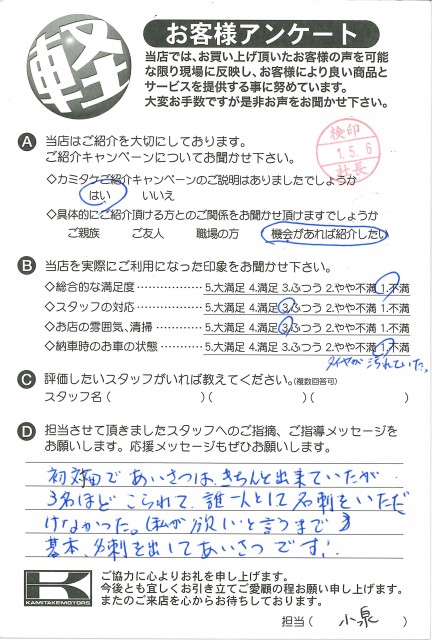 軽
お客様アンケート
当店では、お買い上げ頂いたお客様の声を可能
な限り現場に反映し、お客様により良い商品と
サービスを提供する事に努めています。
大変お手数ですが是非お声をお聞かせ下さい。
A 当店はご紹介を大切にしております。
ご紹介キャンペーンについてお聞かせ下さい。
検印
1.5.6
社長
◇カミタケご紹介キャンペーンのご説明はありましたでしょうか
はい いいえ
◇具体的にご紹介頂ける方とのご関係をお聞かせ頂けますでしょうか
ご親族 ご友人 職場の方 機会があれば紹介したい
B 当店を実際にご利用になった印象をお聞かせ下さい。
◇総合的な満足度 5.大満足 4.満足 3.ふつう 2.やや不満 1.不満
◇スタッフの対応 5.大満足 4.満足 3.ふつう 2.やや不満 1.不満
◇お店の雰囲気、清掃 5.大満足 4.満足 3.ふつう 2.やや不満 1.不満
◇納車時のお車の状態 5.大満足 4.満足 3.ふつう 2.やや不満 1.不満
タイヤが汚れていた。
C 評価したいスタッフがいれば教えてください。(複数回答可)
スタッフ名( )( )( )
D 担当させて頂きましたスタッフへのご指摘、ご指導メッセージを
お願いします。応援メッセージもぜひお願いします。
初対面であいさつは、きちんと出来ていたが
3名ほどこられて、誰一人として名刺をいただ
けなかった。(私が欲しいと言うまで)
基本、名刺を出してあいさつです!
K
KAMITAKEMOTORS
ご協力に心よりお礼を申し上げます。
今後とも宜しくお引き立てご愛顧の程お願い申し上げます。
またのご来店を心からお待ちしております。
担当( 小泉 )